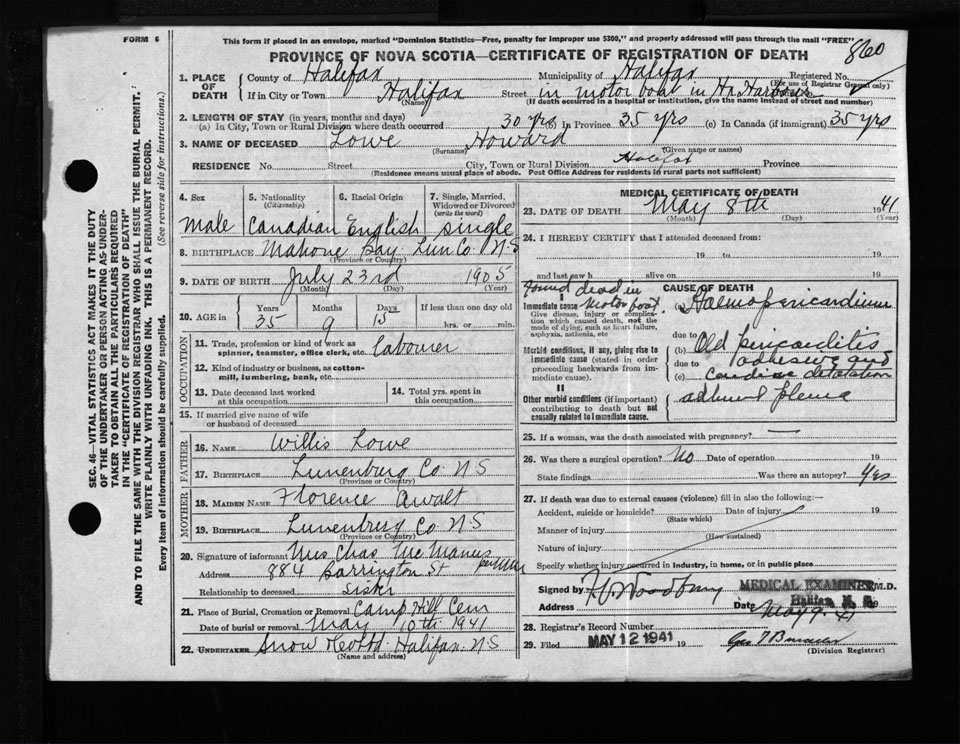 FORM 6
This form if placed in an envelope, marked "Dominion Statistics—Free, penalty for improper use $300," and properly addressed will pass through the mail "FREE"
PROVINCE OF NOVA SCOTIA—CERTIFICATE OF REGISTRATION OF DEATH
860
1. PLACE OF DEATH
County of Halifax Municipality of Halifax Registered No.
(For use of Registrar General only)
If in City or Town Halifax Street in motor boat in Hx Harbour
(Name) (If death occurred in a hospital or institution, give the name instead of street and number)
2. LENGTH OF STAY (in years, months and days)
(a) In City, Town or Rural Division where death occurred 30 yrs (b) In Province 35 yrs (c) In Canada (if immigrant) 35 yrs
3. NAME OF DECEASED Lowe Howard
(Surname) (Given name or names)
RESIDENCE No. Street City, Town or Rural Division Halifax Province
(Residence means usual place of abode. Post Office Address for residents in rural parts not sufficient)
4. Sex 5. Nationality (Citizenship) 6. Racial Origin 7. Single, Married, Widowed or Divorced (write the word)
male Canadian English single
8. BIRTHPLACE Mahone Bay Lun Co N-S
(Province or Country)
9. DATE OF BIRTH July 23rd 1905
(Month) (Day) (Year)
10. AGE in Years Months Days If less than one day old
35 9 15 hrs. or min.
OCCUPATION
11. Trade, profession or kind of work as spinner, teamster, office clerk, etc. labourer
12. Kind of industry or business, as cotton-mill, lumbering, bank, etc.
13. Date deceased last worked at this occupation 14. Total yrs. spent in this occupation
15. If married give name of wife or husband of deceased
FATHER
16. NAME Willis Lowe
17. BIRTHPLACE Lunenburg Co N S
(Province or Country)
MOTHER
18. MAIDEN NAME Florence Awalt
19. BIRTHPLACE Lunenburg Co N-S
(Province or Country)
20. Signature of informant Mrs Chas McManus
Address 884 Barrington St
Relationship to deceased sister
21. Place of Burial, Cremation or Removal Camp Hill Cem
Date of burial or removal May 10th 1941
22. UNDERTAKER Snow Halifax N S
(Name and address)
MEDICAL CERTIFICATE OF DEATH
23. DATE OF DEATH May 8th 1941
(Month) (Day) (Year)
24. I HEREBY CERTIFY that I attended deceased from:
19 to 19
and last saw h alive on 19
CAUSE OF DEATH
found dead in motor boat
Immediate cause (a) Haemopericardium
Give disease, injury or complication which caused death, not the mode of dying, such as heart failure, asphyxia, asthenia, etc
due to
Morbid conditions, if any, giving rise to immediate cause (stated in order proceeding backwards from immediate cause).
(b) Old pericarditis
due to adhesive and
(c) cardiac dilatation
II
Other morbid conditions (if important) contributing to death but not causally related to immediate cause.
25. If a woman, was the death associated with pregnancy? —
26. Was there a surgical operation? No Date of operation 19
State findings Was there an autopsy? Yes
27. If death was due to external causes (violence) fill in also the following:—
Accident, suicide or homicide? Date of injury 19
(State which)
Manner of injury
(How sustained)
Nature of injury
Specify whether injury occurred in industry, in home, or in public place
Signed by MEDICAL EXAMINER M.D.
Halifax N. S.
Address Date May 9. 41 19
28. Registrar's Record Number
29. Filed MAY 12 1941 19
(Division Registrar)
SEC. 46—VITAL STATISTICS ACT MAKES IT THE DUTY
OF THE UNDERTAKER OR PERSON ACTING AS UNDER-
TAKER TO OBTAIN ALL THE PARTICULARS REQUIRED
IN THE "CERTIFICATE OF REGISTRATION OF DEATH"
AND TO FILE THE SAME WITH THE DIVISION REGISTRAR WHO SHALL ISSUE THE BURIAL PERMIT.
WRITE PLAINLY WITH UNFADING INK. THIS IS A PERMANENT RECORD.
Every item of information should be carefully supplied. (See reverse side for instructions.)